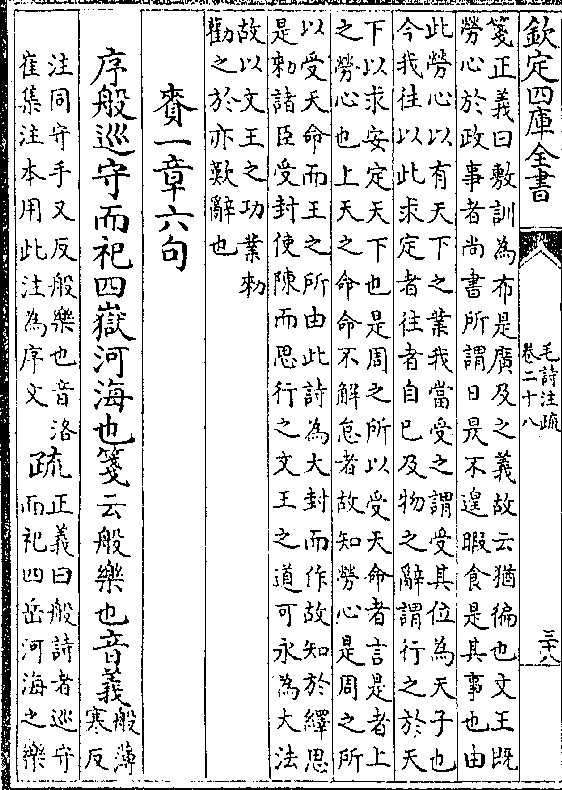 欽定四庫全書
毛詩注疏
卷二十八
三十八
箋正義曰敷訓為布是廣及之義故云猶徧也文王既
勞心於政事者尚書所謂日昃不遑暇食是其事也由
此勞心以有天下之業我當受之謂受其位為天子也
今我往以此求定者往者自已及物之辭謂行之於天
下以求安定天下也是周之所以受天命者言是者上
之勞心也上天之命命不解怠者故知勞心是周之所
以受天命而王之所由此詩為大封而作故知於繹思
是勑諸臣受封使陳而思行之文王之道可永為大法
故以文王之功業勑
勸之於亦歎辭也
賚一章六句
序般巡守而祀四嶽河海也箋云般樂也音義般薄
寒反
注同守手又反般樂也音洛
崔集注本用此注為序文
疏
正義曰般詩者巡守
而祀四岳河海之樂